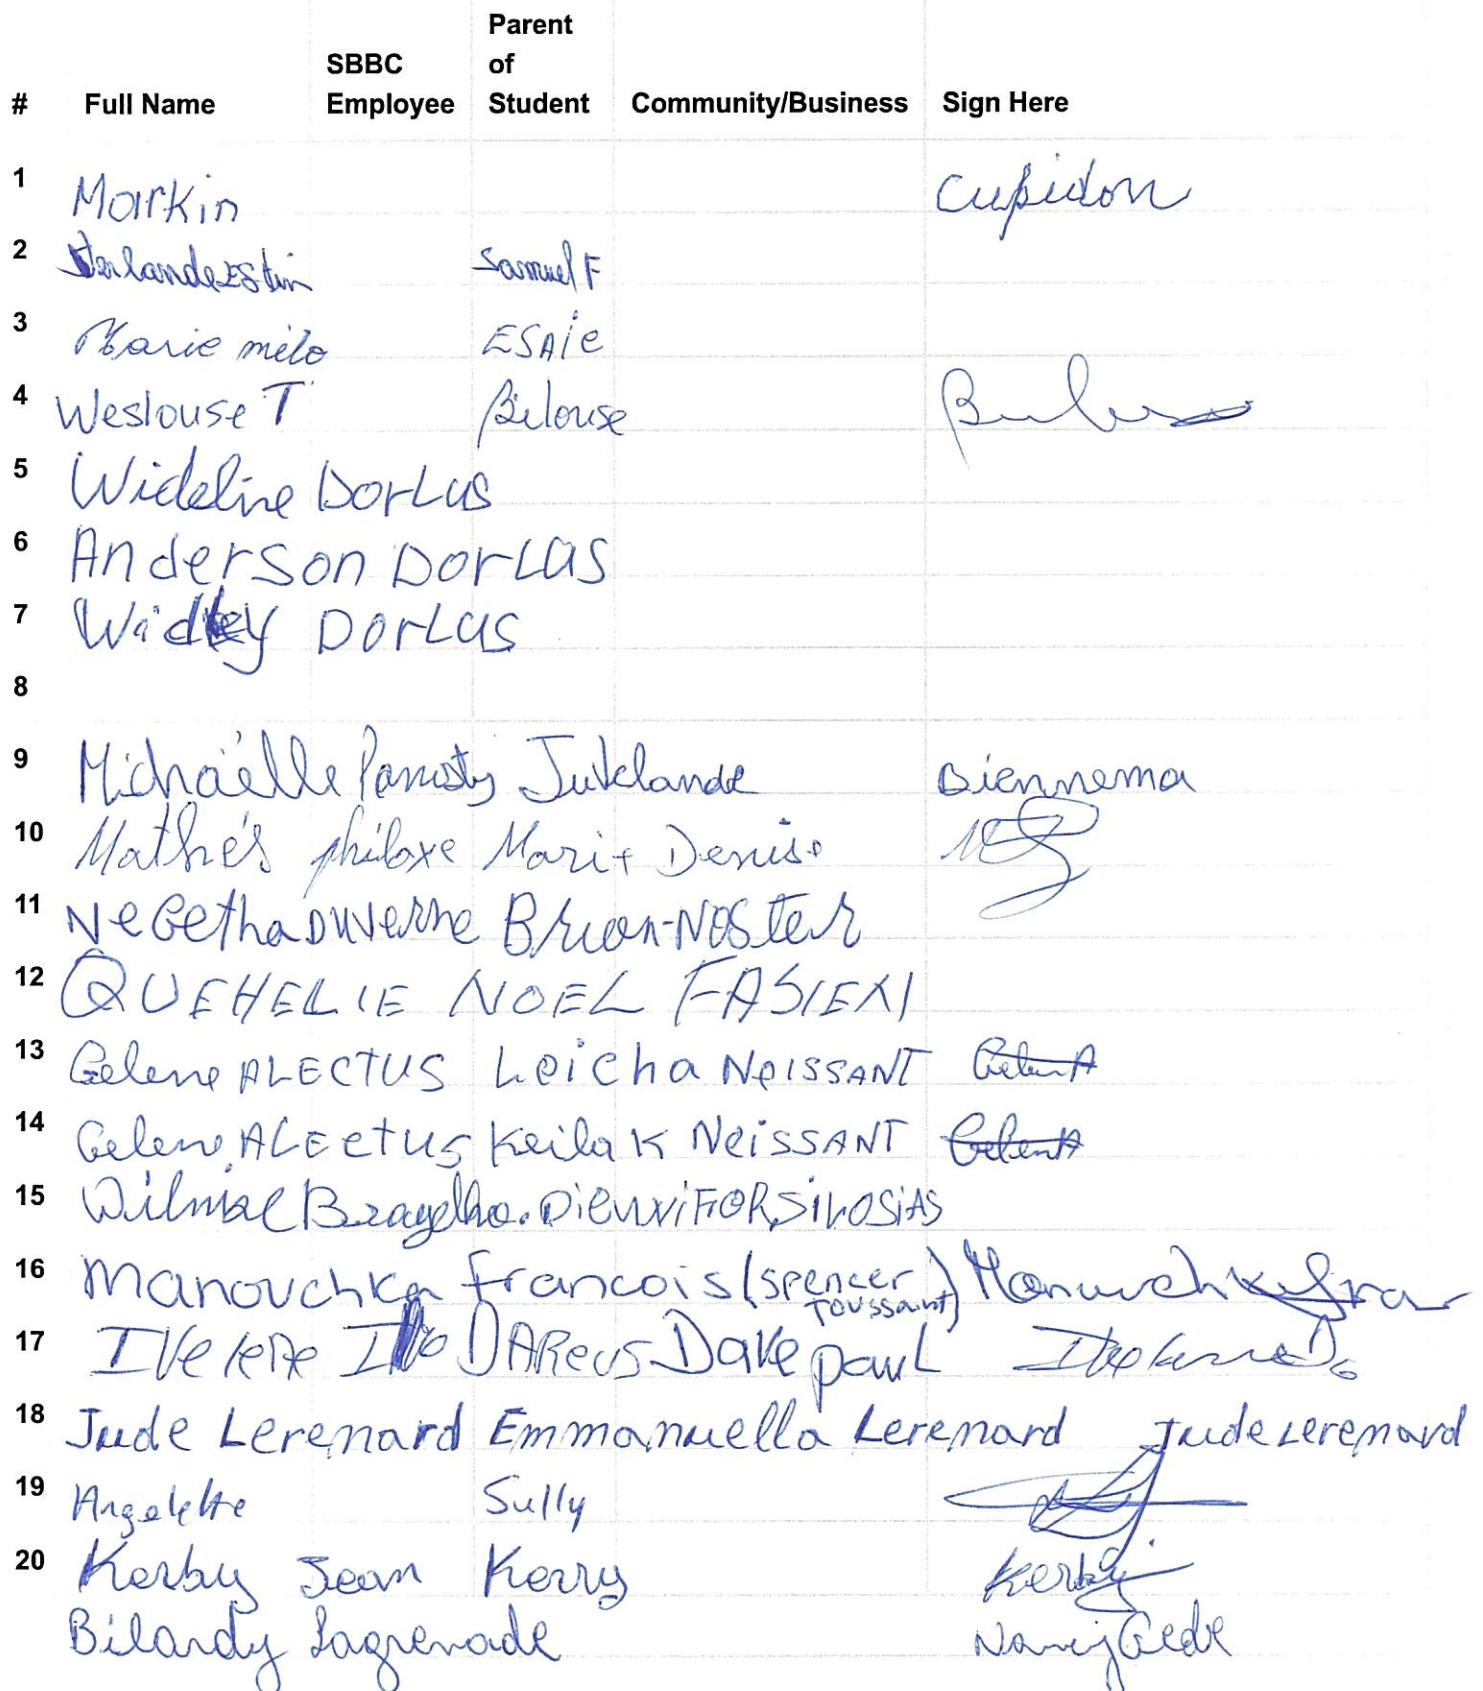 # Full Name SBBC Employee Parent of Student Community/Business Sign Here
1 Markin Cupidon
2 Samuel F
3 Marie milo ESAiE
4 Weslouse T Belouse
5 Wideline DorLus
6 Anderson DorLus
7 Widley DorLus
8
9 Michaëlle Juvelande Biennema
10 Mathés philoxe Marie Denise
11 Negetha DUVerne Brian-NOSter
12 QUEHELIE NOEL
13 Gelene ALECTUS Leicha NeISSANT Gelen A
14 Gelene ALEctUS Keila K NeiSSANT Gelen A
15
16 Manouchka francois (Spencer Toussaint)
17 Dave paul
18 Jude Lerenard Emmanuella Lerenard Jude Lerenard
19 Angelette Sully
20 Kerby Jean Kerry Kerby
Bilardy Lagrenade Nancy Cede